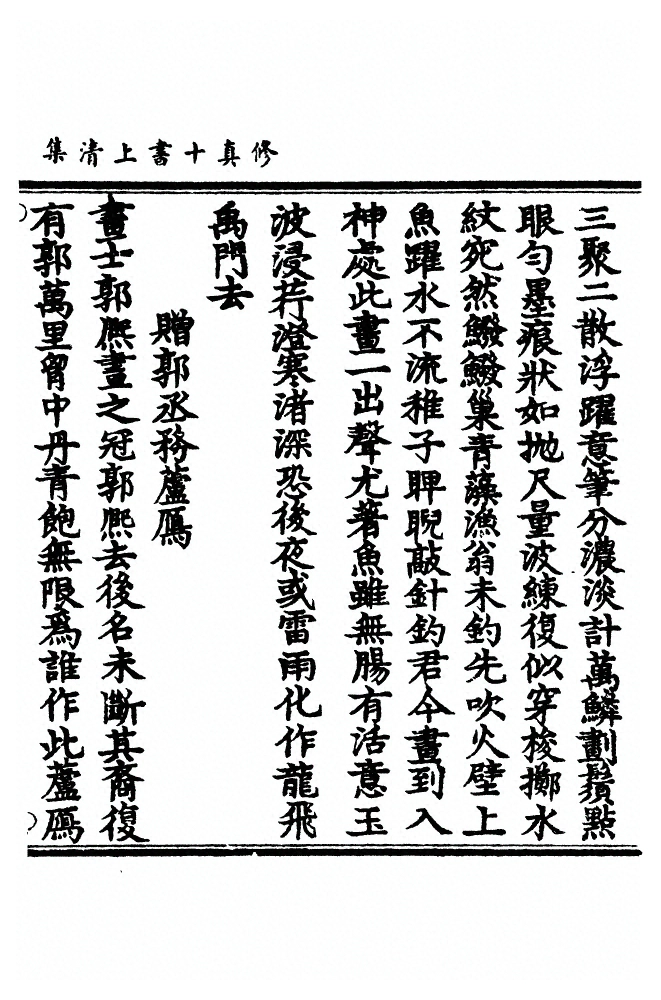 修真十書上清集
三聚二散浮躍意筆分濃淡計萬鱗劃鬚點
眼勻墨痕狀如抛尺量波練復似穿梭擲水
紋宛然鱍鱍巢青藻漁翁未釣先吹火壁上
魚躍水不流稚子睥睨敲針釣君今畫到入
神處此畫一出聲尤著魚雖無腸有活意玉
波浸荇澄寒渚深恐後夜或雷雨化作龍飛
禹門去
贈郭丞務蘆鴈
畫士郭熙畫之冠郭熙去後名未斷其裔復
有郭萬里胷中丹青飽無限爲誰作此蘆鴈